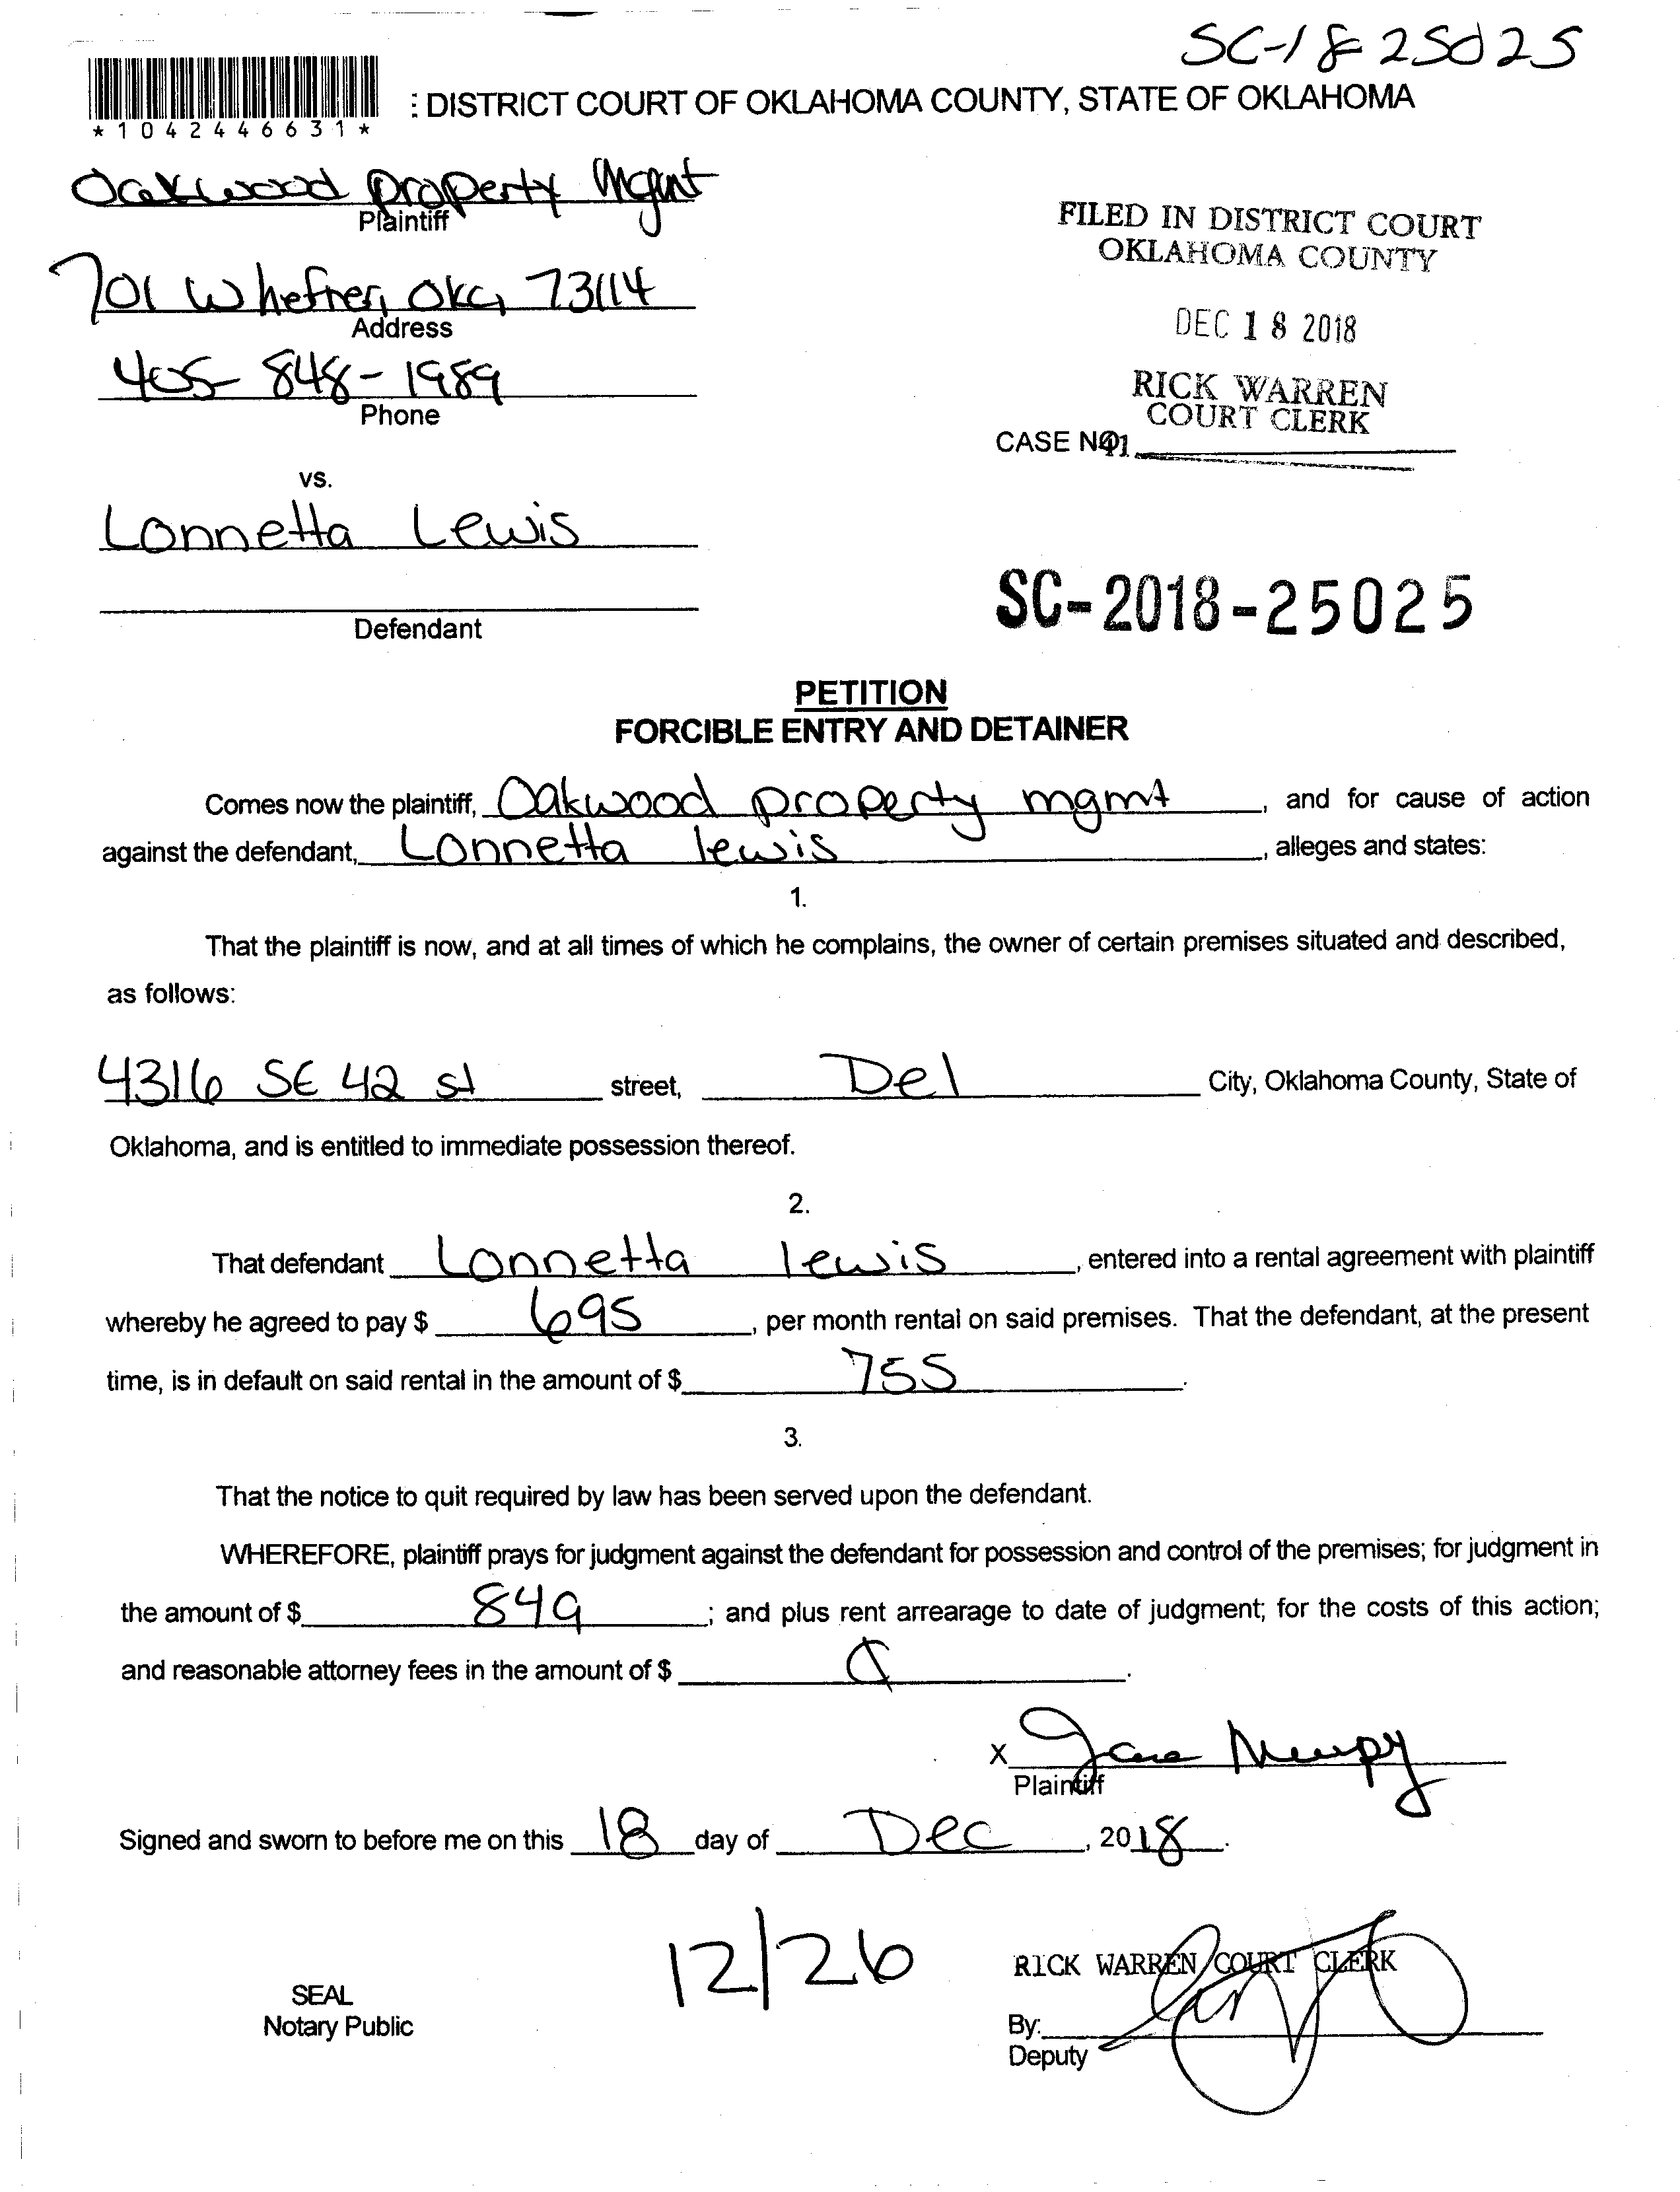 SC-18 25025
*1042446631*
: DISTRICT COURT OF OKLAHOMA COUNTY, STATE OF OKLAHOMA
Oakwood property Mgmt
Plaintiff
701 W hefner, OKC, 73114
Address
405-848-1989
Phone
FILED IN DISTRICT COURT
OKLAHOMA COUNTY
DEC 18 2018
RICK WARREN
COURT CLERK
CASE NO.
41
vs.
Lonnetta Lewis
Defendant
SC-2018-25025
PETITION
FORCIBLE ENTRY AND DETAINER
Comes now the plaintiff, Oakwood property mgmt, and for cause of action
against the defendant, Lonnetta lewis, alleges and states:
1.
That the plaintiff is now, and at all times of which he complains, the owner of certain premises situated and described,
as follows:
4316 SE 42 st street, Del City, Oklahoma County, State of
Oklahoma, and is entitled to immediate possession thereof.
2.
That defendant Lonnetta lewis, entered into a rental agreement with plaintiff
whereby he agreed to pay $ 695, per month rental on said premises. That the defendant, at the present
time, is in default on said rental in the amount of $ 755.
3.
That the notice to quit required by law has been served upon the defendant.
WHEREFORE, plaintiff prays for judgment against the defendant for possession and control of the premises; for judgment in
the amount of $ 849; and plus rent arrearage to date of judgment; for the costs of this action;
and reasonable attorney fees in the amount of $.
X
Plaintiff
Signed and sworn to before me on this 18 day of Dec, 2018.
12/26
SEAL
Notary Public
RICK WARREN COURT CLERK
By:
Deputy